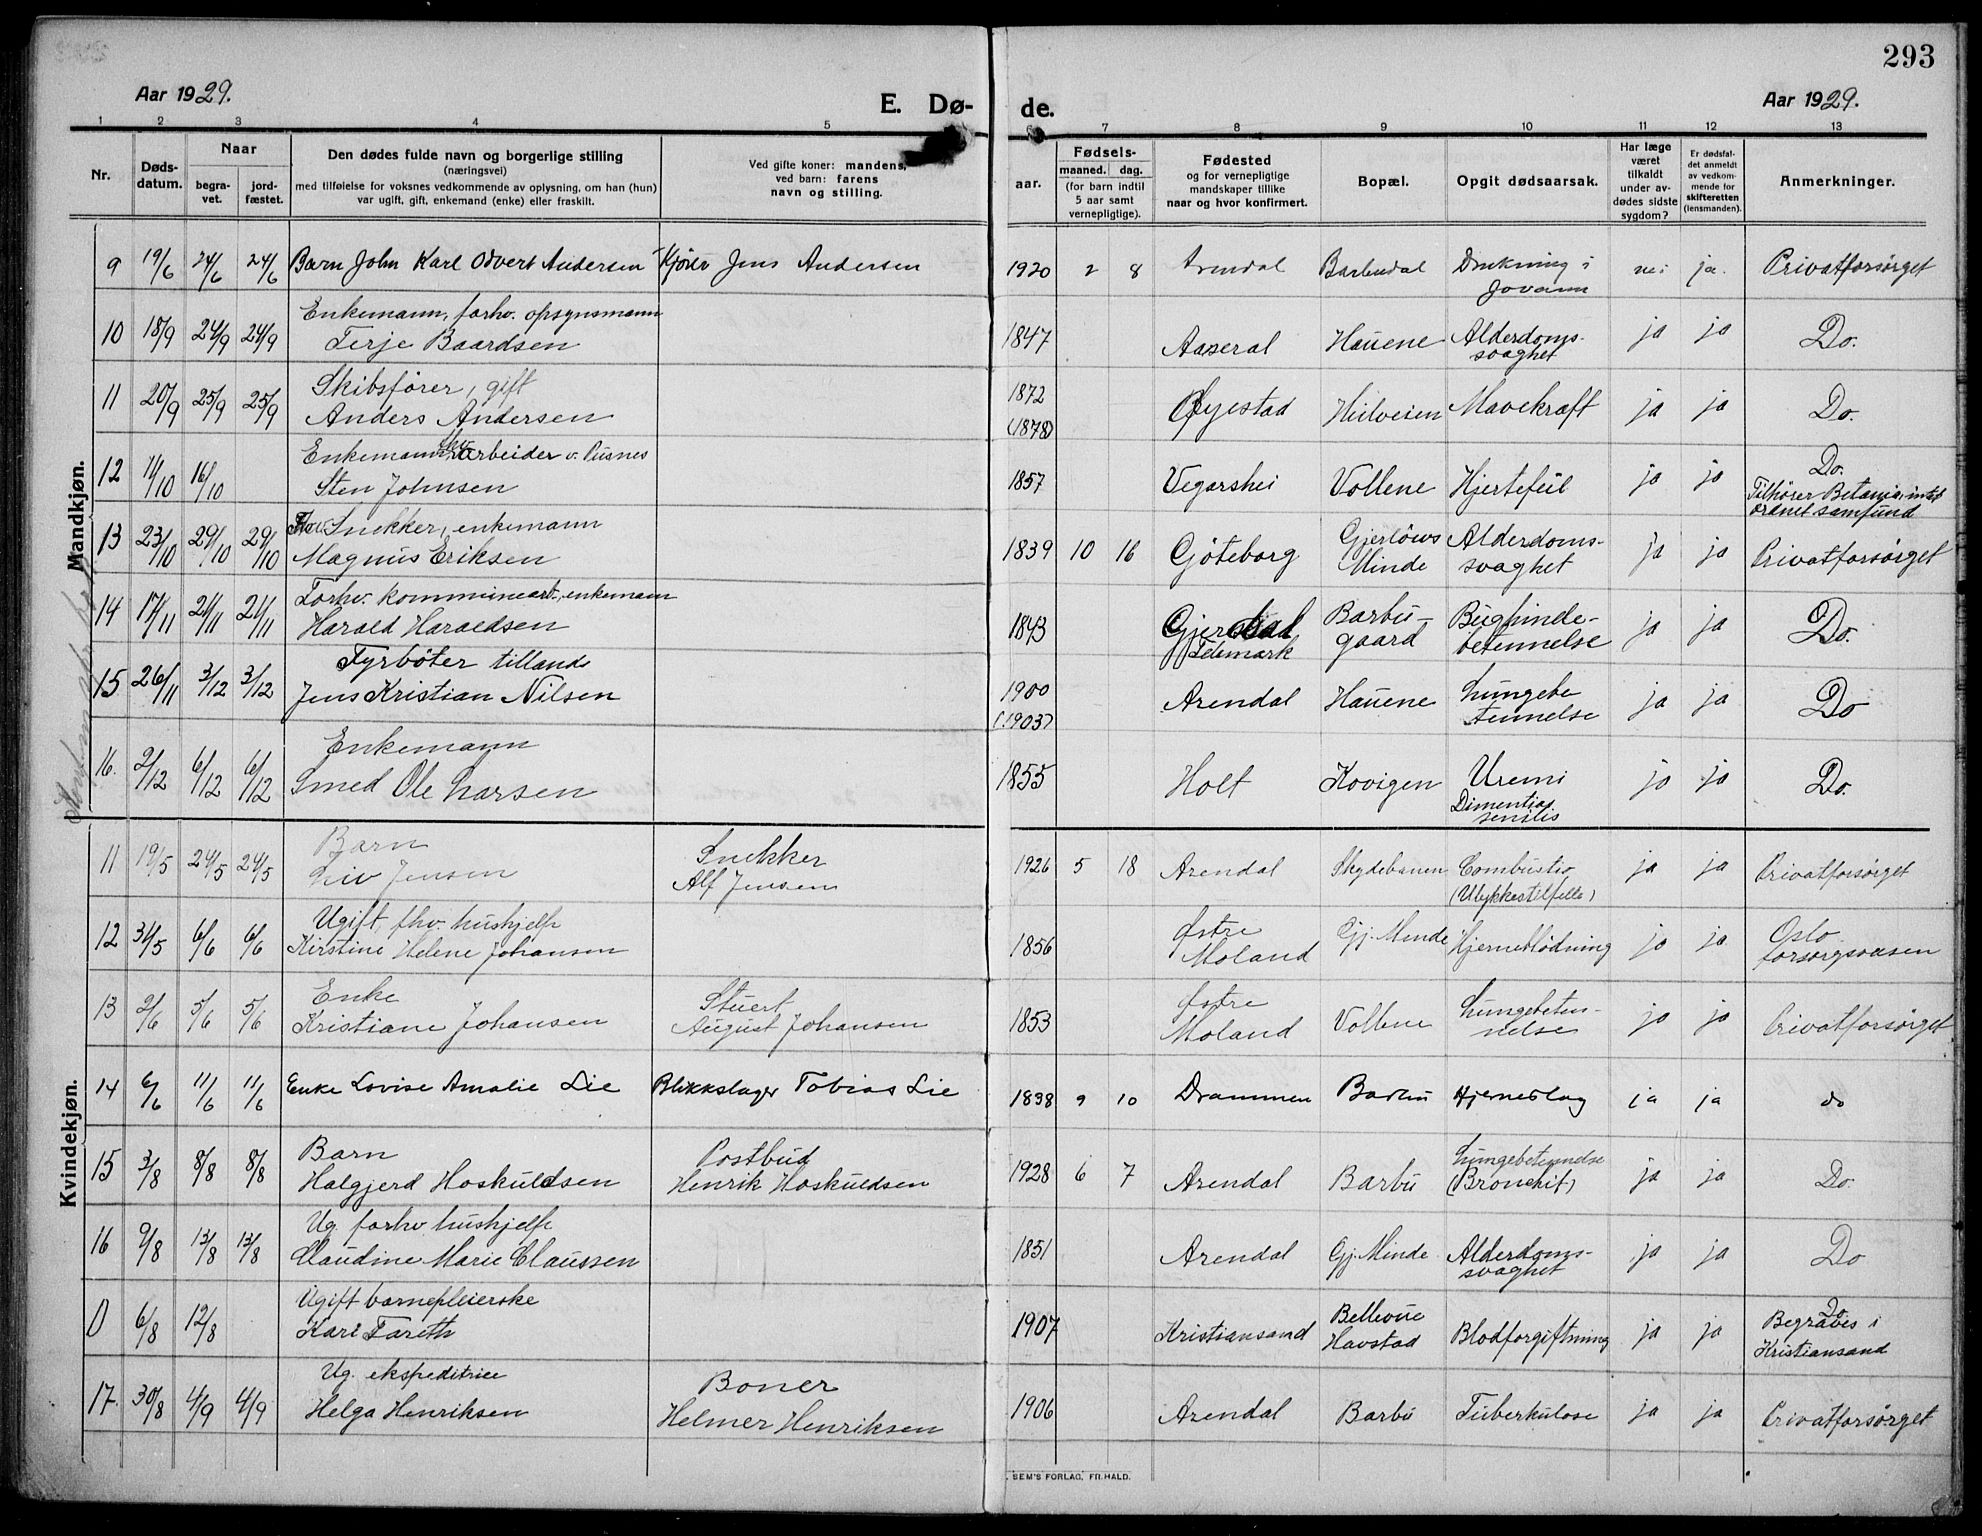 293
Aar 1929.
E. Dø-
de.
Aar 1929.
1 2 3 4 5 6 7 8 9 10 11 12 13
Nr.
Døds-
datum.
Naar
begra-
vet.
jord-
fæstet.
Den dødes fulde navn og borgerlige stilling
(næringsvei)
med tilføielse for voksnes vedkommende av oplysning, om han (hun)
var ugift, gift, enkemand (enke) eller fraskilt.
Ved gifte koner: mandens,
ved barn: farens
navn og stilling.
aar.
Fødsels-
maaned. dag.
(for barn indtil
5 aar samt
vernepligtige).
Fødested
og for vernepligtige
mandskaper tillike
naar og hvor konfirmert.
Bopæl.
Opgit dødsaarsak.
Har læge
været
tilkaldt
under av-
dødes sidste
sygdom?
Er dødsfal-
det anmeldt
av vedkom-
mende for
skifteretten
(lensmanden).
Anmerkninger.
Mandkjøn.
9 19/6 24/6 24/6 Barn John Karl Odvert Andersen Kjører Jens Andersen 1920 2 8 Arendal Barbudal Drukning i nei ja. Privatforsørget
Enkemann, forhv. opsynsmann
10 18/9 24/9 24/9 Terje Baardsen 1847 Aaseral Hauene Alderdoms-
svaghet ja ja Do.
Skibsfører, gift
11 20/9 25/9 25/9 Anders Andersen 1872
(1878) Øyestad Heilveien Mavekræft ja ja Do.
Enkemann, fhv. arbeider v. Pusnes
12 11/10 16/10 Sten Johnsen 1857 Vegarshei Vollene Hjertefeil ja ja Do.
Tilhører Betania
ordnet samfund
Fhv. Snekker, enkemann
13 23/10 29/10 29/10 Magnus Eriksen 1839 10 16 Gjöteborg Gjerløws
Minde Alderdoms-
svaghet ja ja Privatforsørget
Forhv. kommunearb., enkemann
14 17/11 21/11 21/11 Harald Haraldsen 1843
Telemark Barbu-
gaard Bughinde-
betennelse ja ja Do.
Fyrbøter tillands
15 26/11 3/12 3/12 Jens Kristian Nilsen 1900
(1903) Arendal Hauene Lungebe
tennelse ja ja Do
Enkemann
16. 2/12 6/12 6/12 Smed Ole Larsen 1855 Holt Kovigen Uremi
Dimentias
senilis ja ja Do.
Kvindekjøn.
Barn Snekker
11 19/5 24/5 24/5 Liv Jensen Alf Jensen 1926 5 18 Arendal Skydebanen Combustio
(Ulykkestilfelle) ja ja Privatforsørget
Ugift, fhv. hushjelp
12 31/5 6/6 6/6 Kirstine Helene Johansen 1856 Østre
Moland Gj. Minde Hjerneblødning ja ja Oslo
forsørgsvæsen
Enke Stuert
13 2/6 5/6 5/6 Kristiane Johansen August Johansen 1853 Østre
Moland Vollene Lungebeten-
nelse ja ja Privatforsørget
14 6/6 11/6 11/6 Enke Lovise Amalie Lie Blikkslager Tobias Lie 1838 9 10 Drammen Barbu Hjerneslag ja ja do
Barn Postbud
15 3/8 8/8 8/8 Halgjerd Hoskuldsen Henrik Hoskuldsen 1928 6 7 Arendal Barbu Lungebetennelse
(Bronchit) ja ja Do.
Ug. forhv hushjelp
16 9/8 13/8 13/8 Claudine Marie Claussen 1851 Arendal Gj. Minde Alderdoms-
svaghet ja ja Do
Ugift barnepleierske
0 6/8 12/8 Kari Fareth 1907 Kristiansand Bellevue
Havstad Blodforgiftning ja ja Do
Begraves i
Kristiansand
Ug. ekspeditrice Bøner
17. 30/8 4/9 4/9 Helga Henriksen Helmer Henriksen 1906 Arendal Barbu Tuberkulose ja ja Privatforsørget
SEM'S FORLAG, FR. HALD.